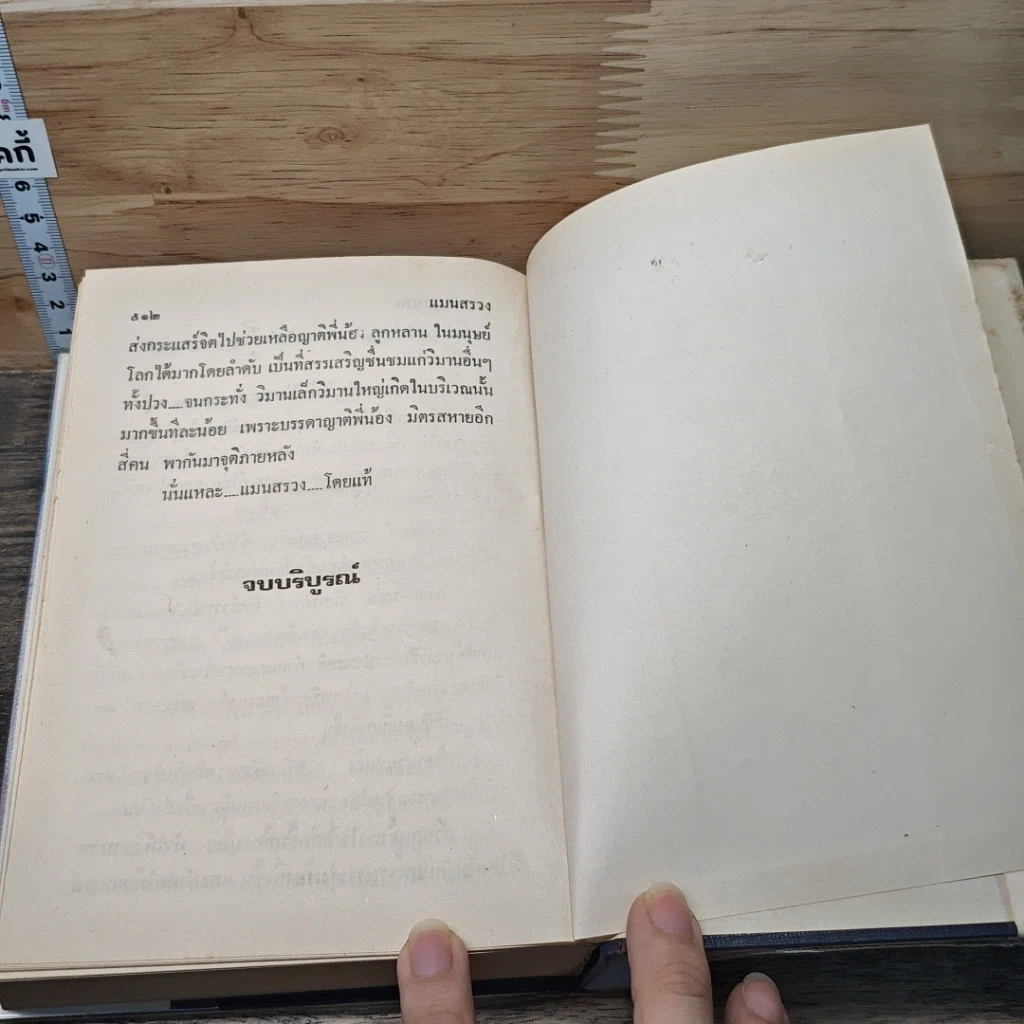 ๕๑๒
แมนสรวง
ส่งกระแสร์จิตไปช่วยเหลือญาติพี่น้อง ลูกหลาน ในมนุษย์
โลกได้มากโดยลำดับ เป็นที่สรรเสริญชื่นชมแก่วิมานอื่นๆ
ทั้งปวง....จนกระทั่ง วิมานเล็กวิมานใหญ่เกิดในบริเวณนั้น
มากขึ้นทีละน้อย เพราะบรรดาญาติพี่น้อง มิตรสหายอีก
สี่คน พากันมาจุติภายหลัง
นั่นแหละ....แมนสรวง....โดยแท้
จบบริบูรณ์
6
5
4
3
2
1